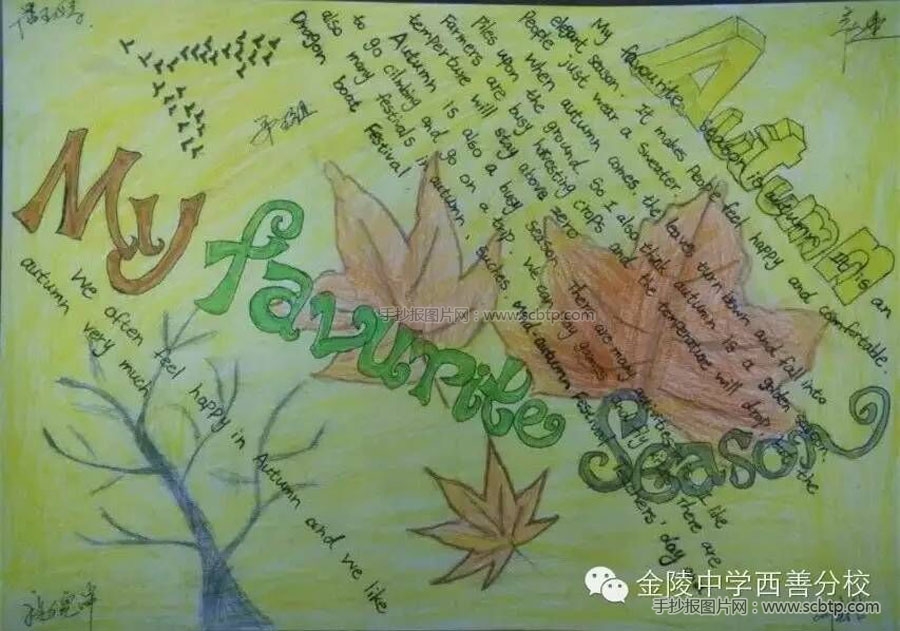 Autumn
My favourite season is autumn. is an
elegant season. It makes people feel happy and comfortable.
People just wear a sweater when autumn comes the leaves turn down and fall into
Piles upon the ground. So I also think autumn is a golden season.
Farmers are busy harvesting crops and the temperature will drop the
temperture will stay above zero.
Autumn is also a busy season. There are many activities I like
to go climbing and go on a trip. We can play games and fly There are
also many festivals in autumn, such as mid-autumn Festival, day
Dragon boat Festival
My
favurite
Season
We often feel happy in Autumn and we like
autumn very much
手抄报图片网：www.scbtp.com
金陵中学西善分校
手抄报图片网：www.scbtp.com